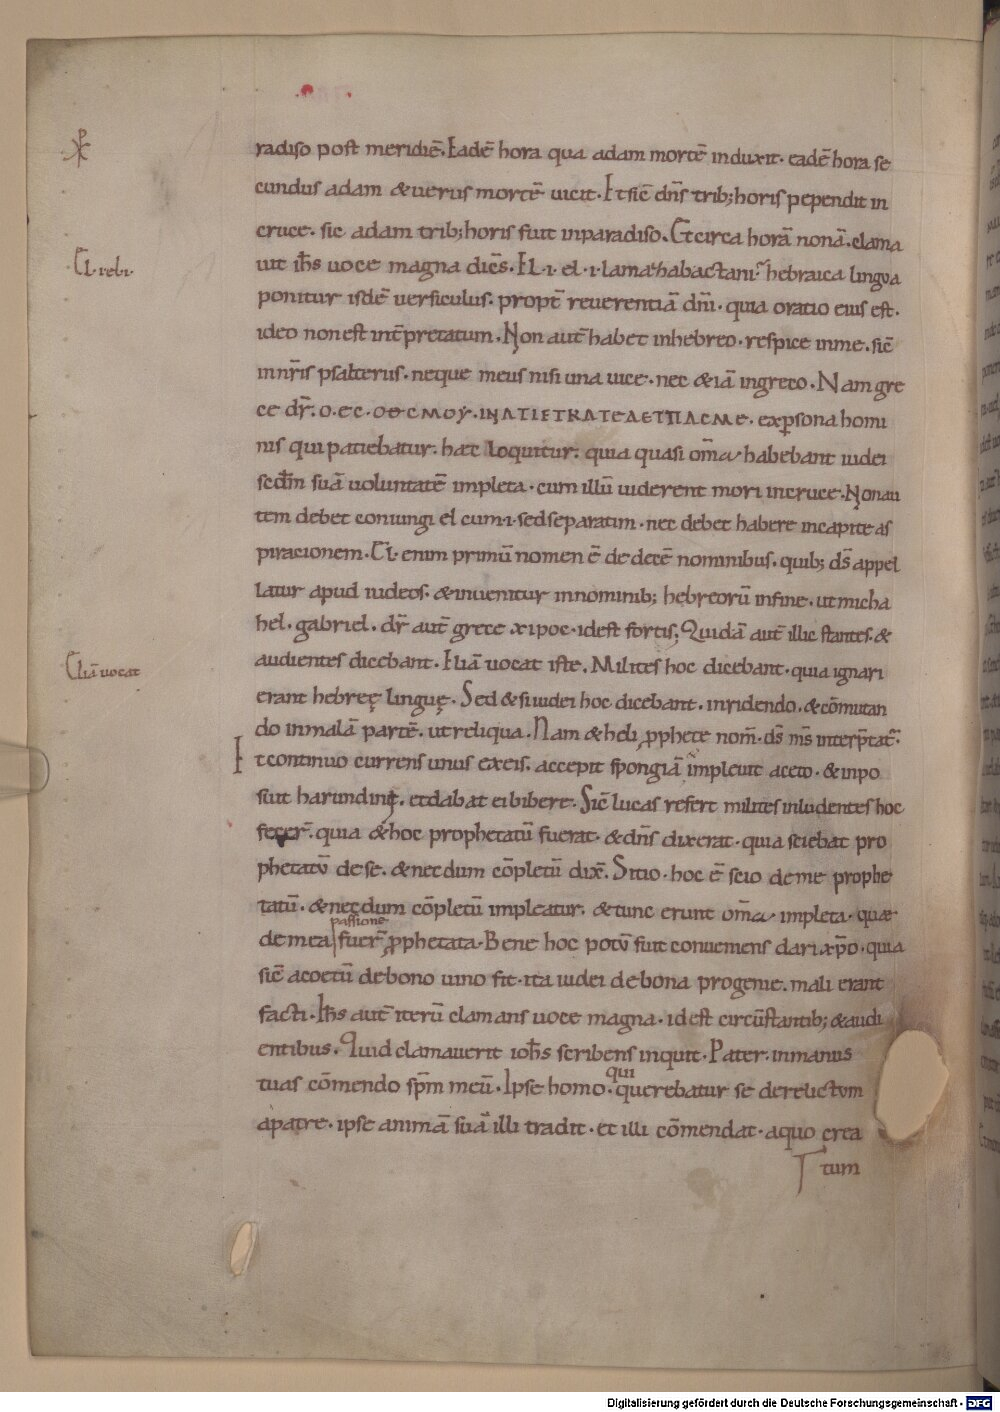 radiso post meridiē. Eadē hora qua adam mortē induxit. eadē hora se
cundus adam & uerus mortē uicit. Et sic̄ dn̄s trib; horis pependit in
cruce. sic adam trib; horis fuit inparadiso. Et circa horā nonā. clama
El. reli.
uit ih̄s uoce magna dicēs. HL. i. el. i. lama habactani. hebraica lingua
ponitur isdē uersiculus. propt̄ reuerentiā dn̄i. quia oratio eius est.
ideo non est int̄pretatum. Non aut̄ habet inhebreo. respice inme. sic̄
in nr̄is psalterus. neque meus nisi una uice. nec & iā ingreco. Nam gre
ce dr̄. o. ec. oec moy. expsona homi
nis qui patiebatur. hæc loquitur. quia quasi om̄a habebant iudei
secd̄m suā uoluntatē impleta. cum illū uiderent mori incruce. Non au
tem debet coniungi el cum. i. sed separatim. nec debet habere incapite as
piracionem. El. enim primū nomen ē de decē nominibus. quib; ds̄ appel
latur apud iudeos. & inuenitur innominib; hebreorū infine. ut micha
hel. gabriel. dr̄ aut̄ grece xipoc. idest fortis. Quidā aut̄ illic stantes. &
Eliā uocat
audientes dicebant. Eliā uocat iste. Milites hoc dicebant. quia ignari
erant hebreę linguę. Sed & si iudei hoc dicebant. inridendo. & cōmutan
do inmalā partē. ut reliqua. Nam & heli pphete nom̄. ds̄ ms̄ interp̄tat̄.
Et continuo currens unus exeis. accepit spongiā impleuit aceto. & inpo
suit harundinę. et dabat ei bibere. Sic̄ lucas refert milites inludentes hoc
fecer̄. quia & hoc prophetatū fuerat. & dn̄s dixerat. quia sciebat pro
phetatū de se. & necdum cōpletū dix̄. Sitio. hoc ē scio deme prophe
tatū. & necdum cōpletū impleatur. & tunc erunt om̄a impleta. quæ
passione
de mea fuer̄ pphetata. Bene hoc potū fuit conueniens dari xp̄o. quia
sic̄ acoetū debono uino fit. ita iudei debona progenie. mali erant
facti. Ih̄s aut̄ iterū clamans uoce magna. idest circūstantib; & audi
entibus. Quid clamauerit ioh̄s scribens inquit. Pater. inmanus
qui
tuas cōmendo sp̄m meū. Ipse homo. querebatur se derelictum
apatre. ipse animā suā illi tradit. et illi cōmendat. aquo crea
tum
Digitalisierung gefördert durch die Deutsche Forschungsgemeinschaft - DFG